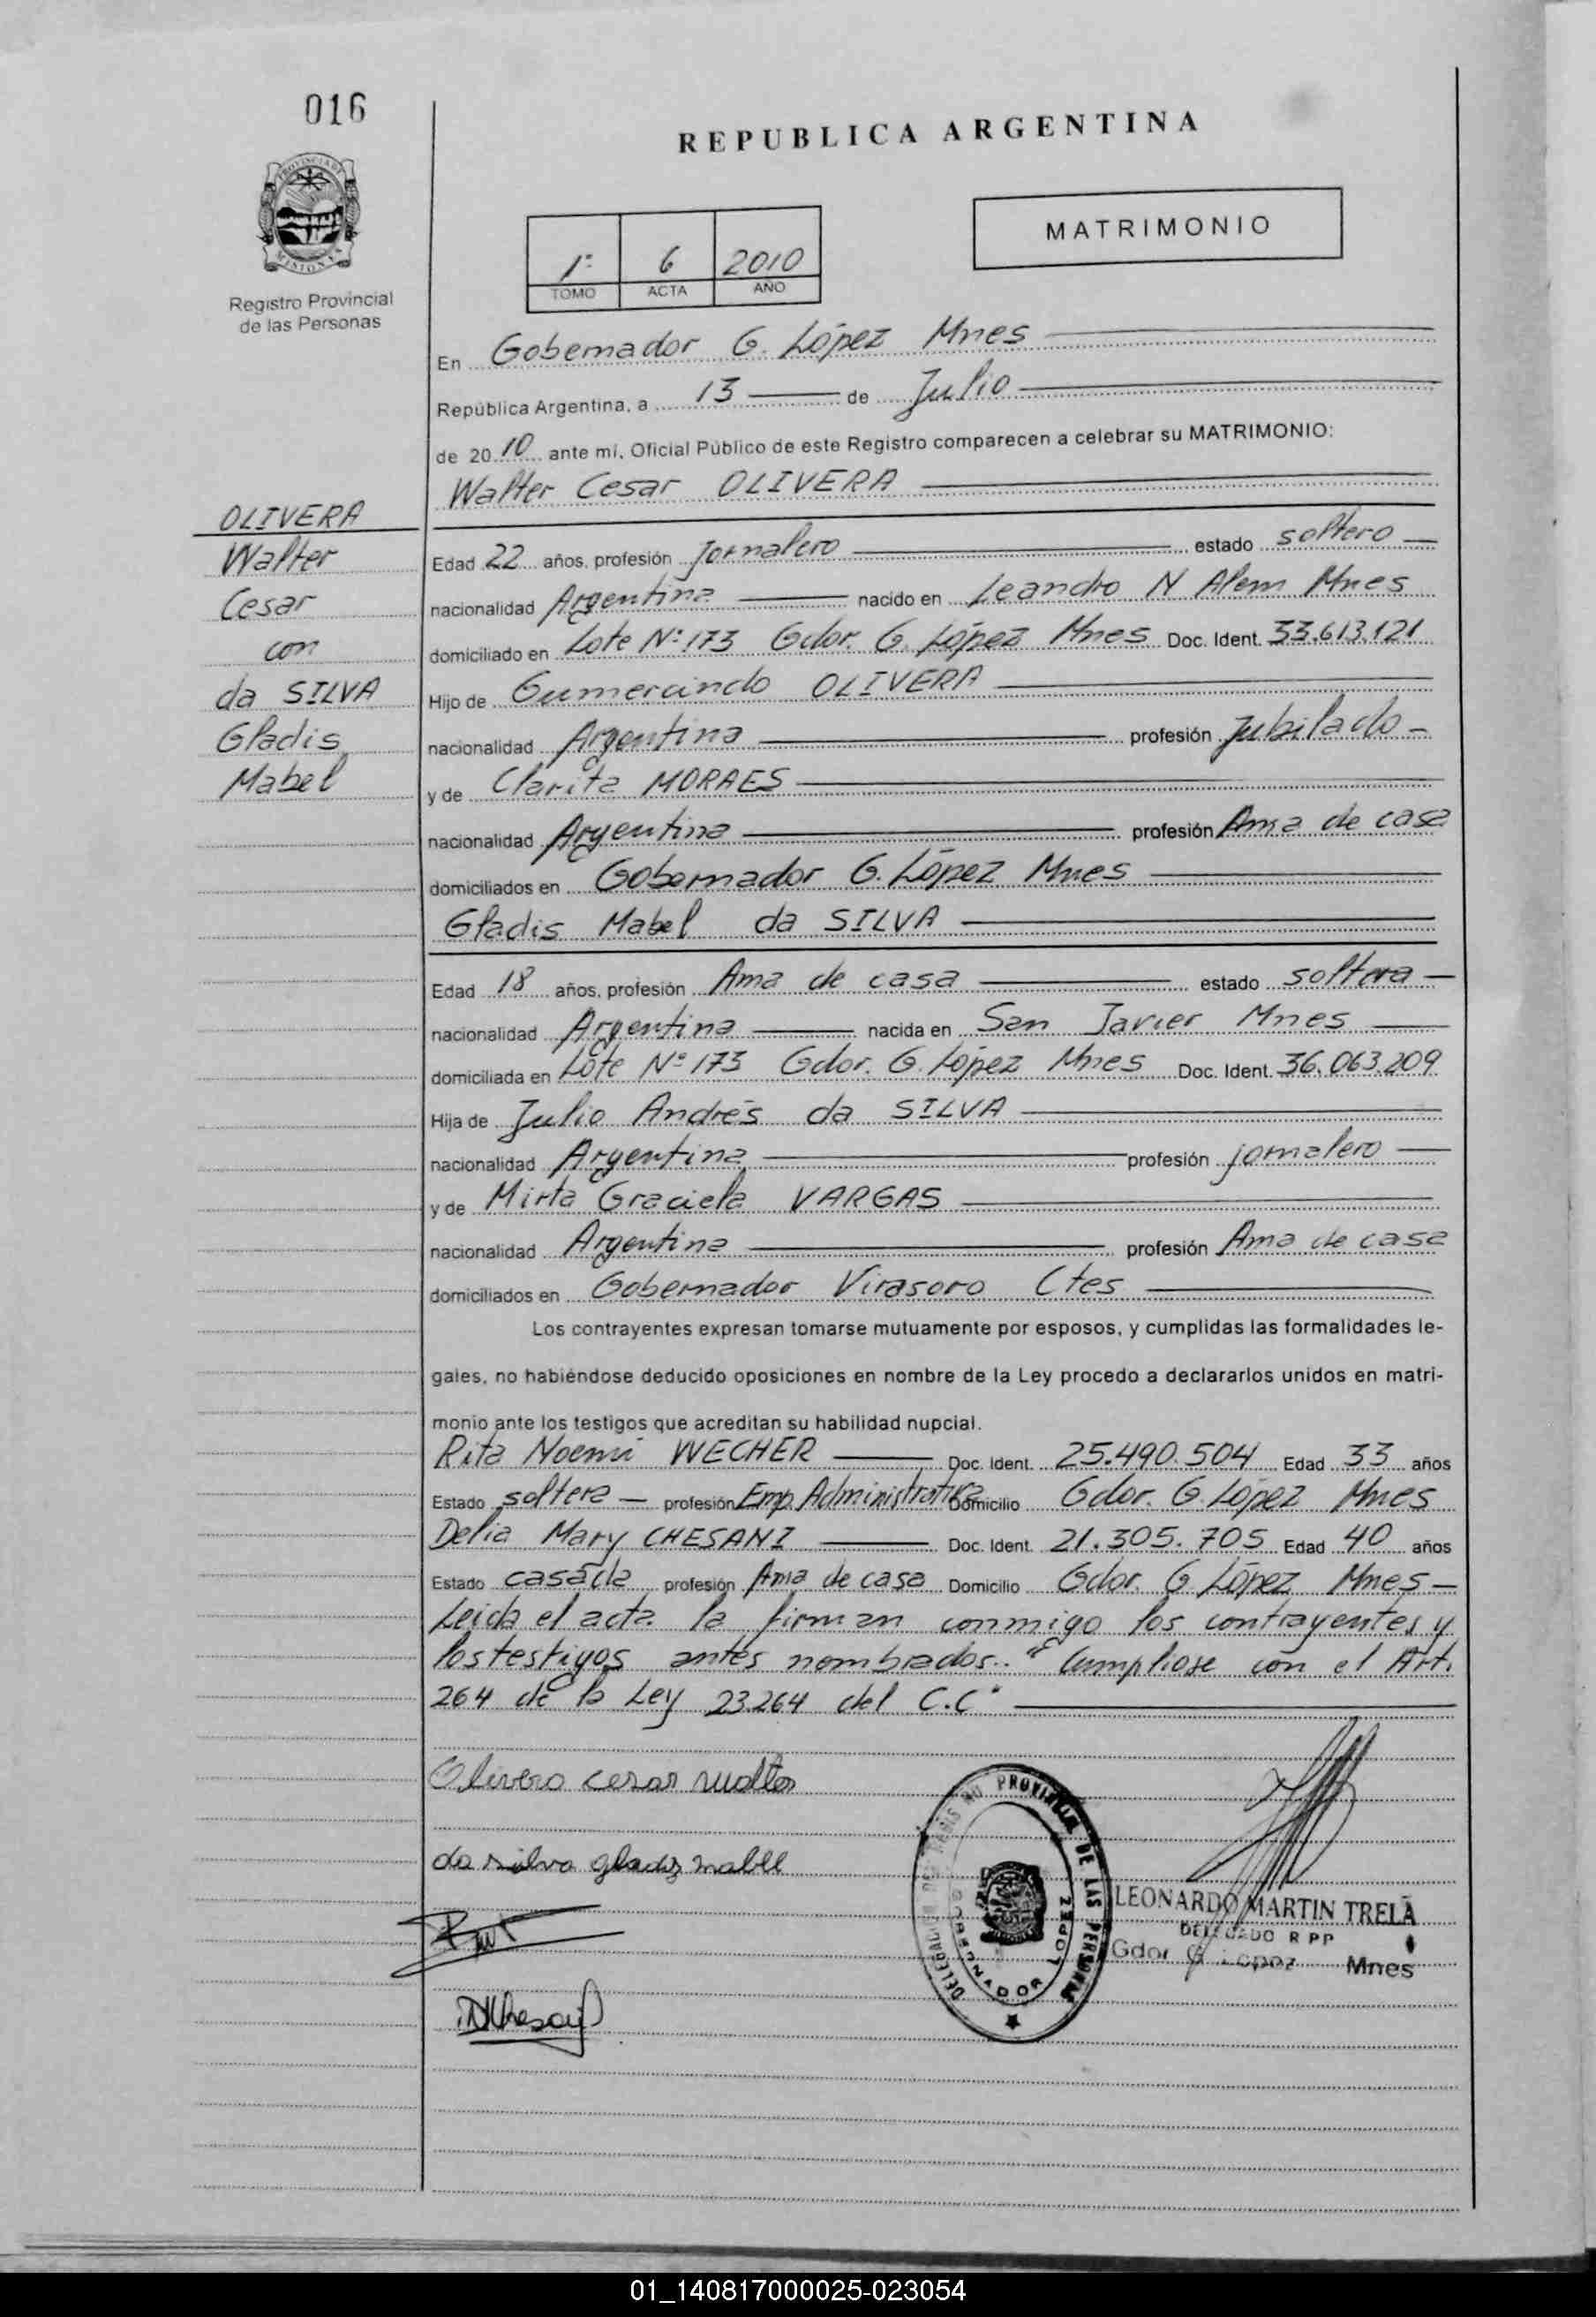 016
REPUBLICA ARGENTINA
PROVINCIA DE
MISIONES
Registro Provincial
de las Personas
MATRIMONIO
1º 6 2010
TOMO ACTA AÑO
En Gobernador G. López Mnes
República Argentina, a 13 de Julio
de 2010 ante mí, Oficial Público de este Registro comparecen a celebrar su MATRIMONIO:
Walter Cesar OLIVERA
OLIVERA
Walter
Cesar
con
da SILVA
Gladis
Mabel
Edad 22 años, profesión Jornalero estado soltero
nacionalidad Argentina nacido en Leandro N Alem Mnes
domiciliado en Lote Nº 173 Gdor. G. López Mnes Doc. Ident. 33.613.121
Hijo de Gumercindo OLIVERA
nacionalidad Argentina profesión Jubilado
y de Clarita MORAES
nacionalidad Argentina profesión Ama de casa
domiciliados en Gobernador G. López Mnes
Gladis Mabel da SILVA
Edad 18 años, profesión Ama de casa estado soltera
nacionalidad Argentina nacida en San Javier Mnes
domiciliada en Lote Nº 173 Gdor. G. López Mnes Doc. Ident. 36.063.209
Hija de Julio Andrés da SILVA
nacionalidad Argentina profesión jornalero
y de Mirta Graciela VARGAS
nacionalidad Argentina profesión Ama de casa
domiciliados en Gobernador Virasoro Ctes
Los contrayentes expresan tomarse mutuamente por esposos, y cumplidas las formalidades le-
gales, no habiéndose deducido oposiciones en nombre de la Ley procedo a declararlos unidos en matri-
monio ante los testigos que acreditan su habilidad nupcial.
Rita Noemi WECHER Doc. Ident. 25.490.504 Edad 33 años
Estado soltera profesión Emp. Administrativa Domicilio Gdor. G. López Mnes
Delia Mary CHESANI Doc. Ident. 21.305.705 Edad 40 años
Estado casada profesión Ama de casa Domicilio Gdor. G López Mnes
Leida el acta la firman conmigo los contrayentes y
los testigos antes nombrados. "Cumpliose con el Art.
264 de la Ley 23.264 del C.C"
Olivera cesar walter
da silva gladis mabel
DMChesani
PROVINCIAL DE LAS PERSONAS
DELEGACION
GOBERNADOR LOPEZ
LEONARDO MARTIN TRELA
DELEGADO R PP
Gdor G Lopez Mnes
01_140817000025-023054